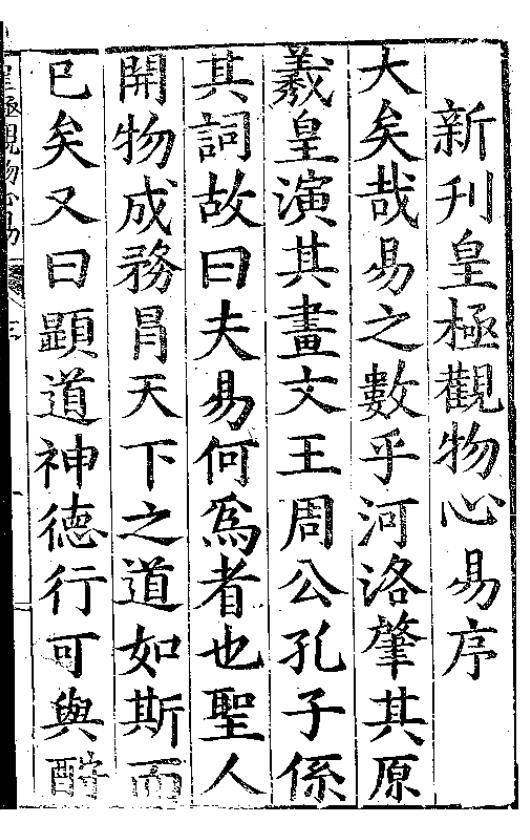 新刊皇極觀物心易序
大矣哉易之數乎河洛肇其原
羲皇演其畫文王周公孔子係
其詞故曰夫易何爲者也聖人
開物成務冐天下之道如斯而
已矣又曰顕道神德行可與酧
皇極觀物心易